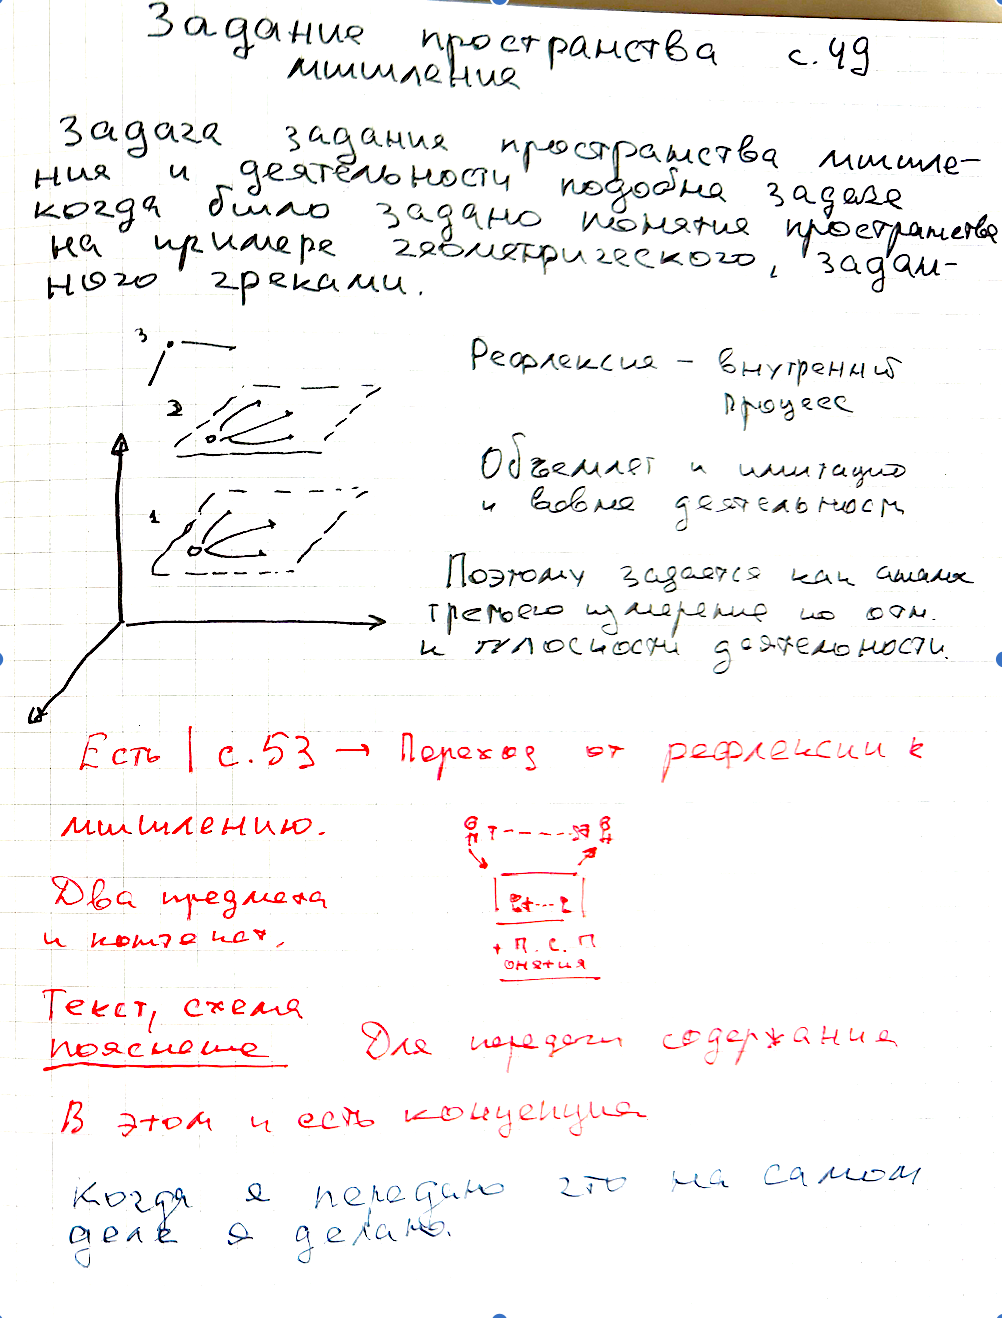 Задание пространства с.49
мышления
Задача задания пространства мышле-
ния и деятельности подобна задаче
когда было задано понятие пространства
на примере геометрического, задан-
ного греками.
3
Рефлексия – внутренний
процесс
2
Объемлет и имитацию
и вовне деятельность
1
Поэтому задается как аналог
третьего измерение по отн.
к плоскости деятельности.
Есть | с.53 → Переход от рефлексии к
мышлению.
Два предмета
и контекст.
+ П. С. П
онятия
Текст, схема
пояснение
Для передачи содержание
В этом и есть концепция
Когда я передаю это на самом
деле я делаю.